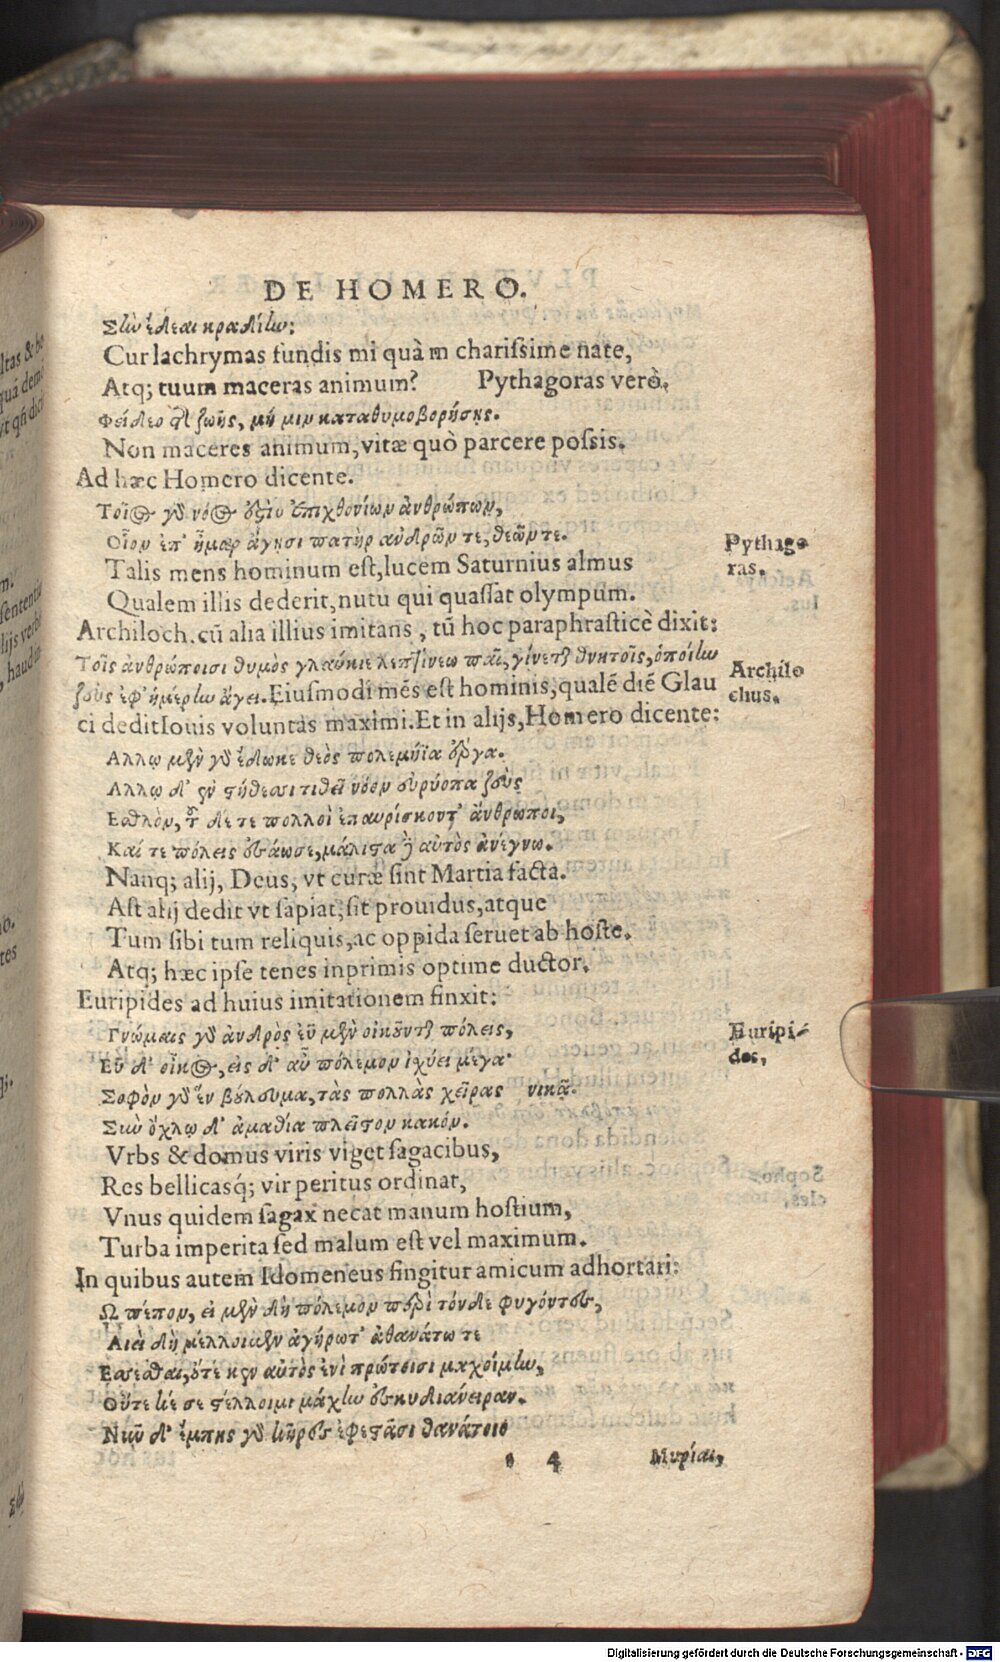 DE HOMERO.
Σὴν ἔδεαι κραδίην;
Cur lachrymas fundis mi quàm charissime nate,
Atq; tuum maceras animum? Pythagoras verò,
Φείδεο τῆς ζωῆς, μή μιν καταθυμοβορήσῃς.
Non maceres animum, vitæ quò parcere possis.
Ad hæc Homero dicente.
Τοῖος γὸ νόος ὅςὶν ἐπιχθονίων ἀνθρώπων,
Οἷον ἐπ' ἦμαρ ἄγησι πατὴρ ανδρῶν τε, θεῶν τε.
Pythago
ras.
Talis mens hominum est, lucem Saturnius almus
Qualem illis dederit, nutu qui quassat olympum.
Archiloch. cū alia illius imitans, tū hoc paraphrasticè dixit:
Τοῖς ἀνθρώποισι θυμὸς γλαύκιε λεπτίνεω παῖ, γίνεται θνητοῖς, ὁποίην
Archilo
chus.
ζεὺς ἐφ' ἡμέρην ἄγει. Eiusmodi mēs est hominis, qualē diē Glau
ci dedit Iouis voluntas maximi. Et in alijs, Homero dicente:
Αλλῳ μὲν γὸ ἔδωκε θεὸς πολεμήϊα ἔργα.
Αλλῳ δ' ἐν στήθεσσι τιθεῖ νόον εὐρύοπα ζεὺς
Εσθλὸν, τοῦ δέ τε πολλοὶ ἐπαυρίσκοντ' ἄνθρωποι,
Καί τε πόλεις ἐσάωσε, μάλιστα δὲ αὐτὸς ἀνέγνω.
Nanq; alij, Deus, vt curæ sint Martia facta.
Ast alij dedit vt sapiat, sit prouidus, atque
Tum sibi tum reliquis, ac oppida seruet ab hoste.
Atq; hæc ipse tenes inprimis optime ductor.
Euripides ad huius imitationem finxit:
Γνώμαις γὸ ἀνδρὸς εὖ μὲν οἰκοῦνται πόλεις,
Euripi-
des,
Εὖ δ' οἶκος, εἰς δ' αὖ πόλεμον ἰχύει μέγα·
Σοφὸν γὸ ἓν βούλευμα, τὰς πολλὰς χεῖρας νικᾷ.
Σὺν ὄχλῳ δ' ἀμαθία πλεῖστον κακόν.
Vrbs & domus viris viget sagacibus,
Res bellicasq́; vir peritus ordinat,
Vnus quidem sagax necat manum hostium,
Turba imperita sed malum est vel maximum.
In quibus autem Idomeneus fingitur amicum adhortari:
Ω πέπον, ει μὲν δὴ πόλεμον περὶ τόνδε φυγόντες,
Αιεὶ δὴ μέλλοιμεν ἀγήρωτ' ἀθανάτω τε
Εσσεσθαι, ὄτε κεν αὐτὸς ἐνὶ πρώτοισι μαχοίμην,
Οὔτε κέ σε στέλλοιμι μάχην ἐς κυδιάνειραν.
Νῦν δ' ἔμπης γὸ κῆρες ἐφεστᾶσι θανάτοιο
4
Μυρίαι,